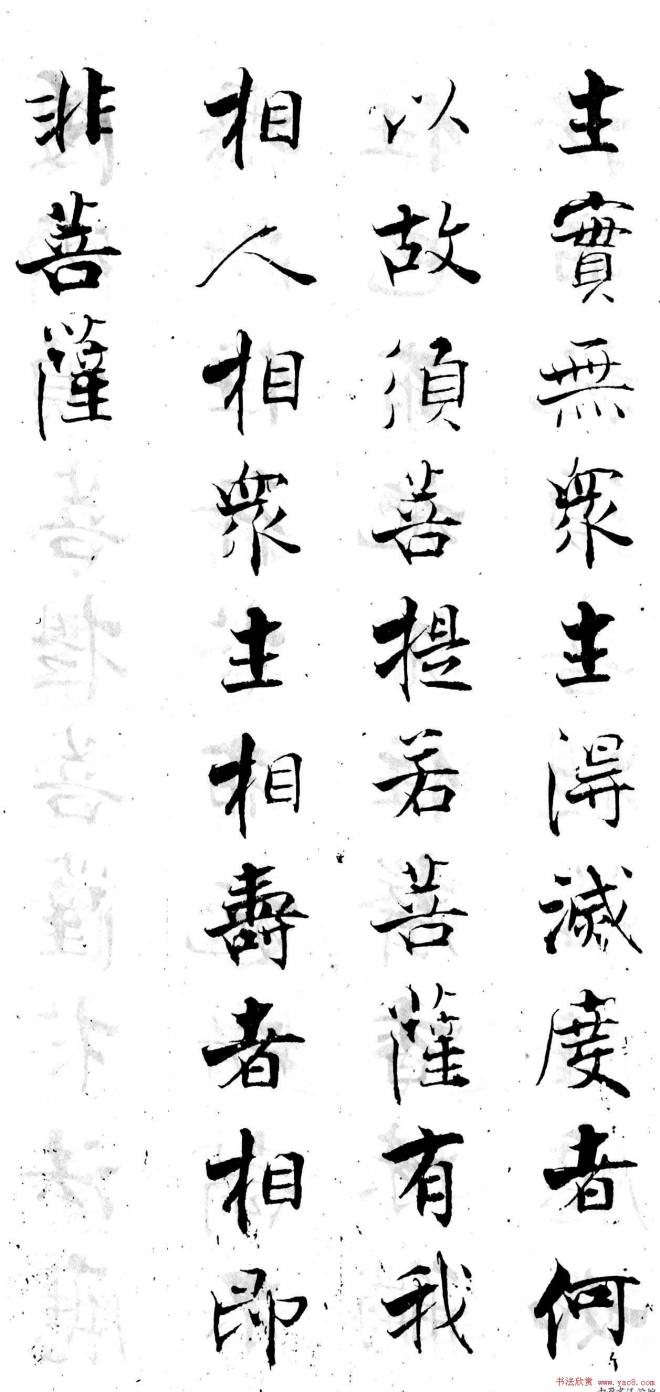 生實無眾生得滅度者何
以故須菩提若菩薩有我
相人相眾生相壽者相即
非菩薩
书法欣赏
www.yac8.com